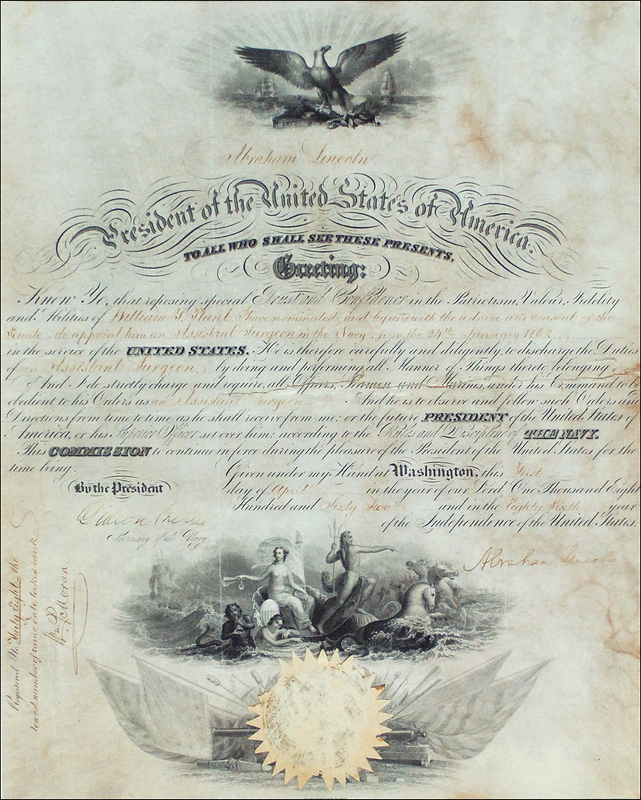 Abraham Lincoln
President of the United States of America.
TO ALL WHO SHALL SEE THESE PRESENTS,
Greeting:
Know Ye, that reposing special Trust and Confidence in the Patriotism, Valour, Fidelity
and Abilities of William I have nominated, and by and with the advice and consent of the
Senate, do appoint him an Assistant Surgeon in the Navy, from the 24th January 1862
in the service of the UNITED STATES. He is therefore carefully and diligently to discharge the Duties
of an Assistant Surgeon by doing and performing all Manner of Things thereto belonging.
And I do strictly charge and require all Officers, Seamen and Marines, under his Command to be
obedient to his Orders as an Assistant Surgeon And he is to observe and follow such Orders and
Directions from time to time as he shall receive from me, or the future PRESIDENT of the United States of
America, or his Superior Officer set over him, according to the Rules and Discipline of THE NAVY.
This COMMISSION to continue in force during the pleasure of the President of the United States for the
time being.
Given under my Hand at Washington, this First
By the President
day of April in the year of our Lord One Thousand Eight
Hundred and Sixty Two and in the Eighty Sixth year
of the Independence of the United States.
Secretary of the Navy.
Abraham Lincoln
Registered No. Thirty Eight. the
lowest number of same date takes rank
Moran